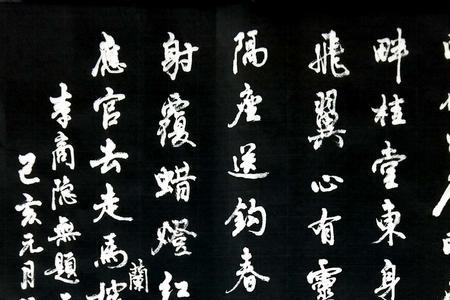 畔桂堂東身
飛翼心有靈
隔座送鈎春
射覆蜡燈紅
蘭
應官去走馬
李商隐無題
己亥元月